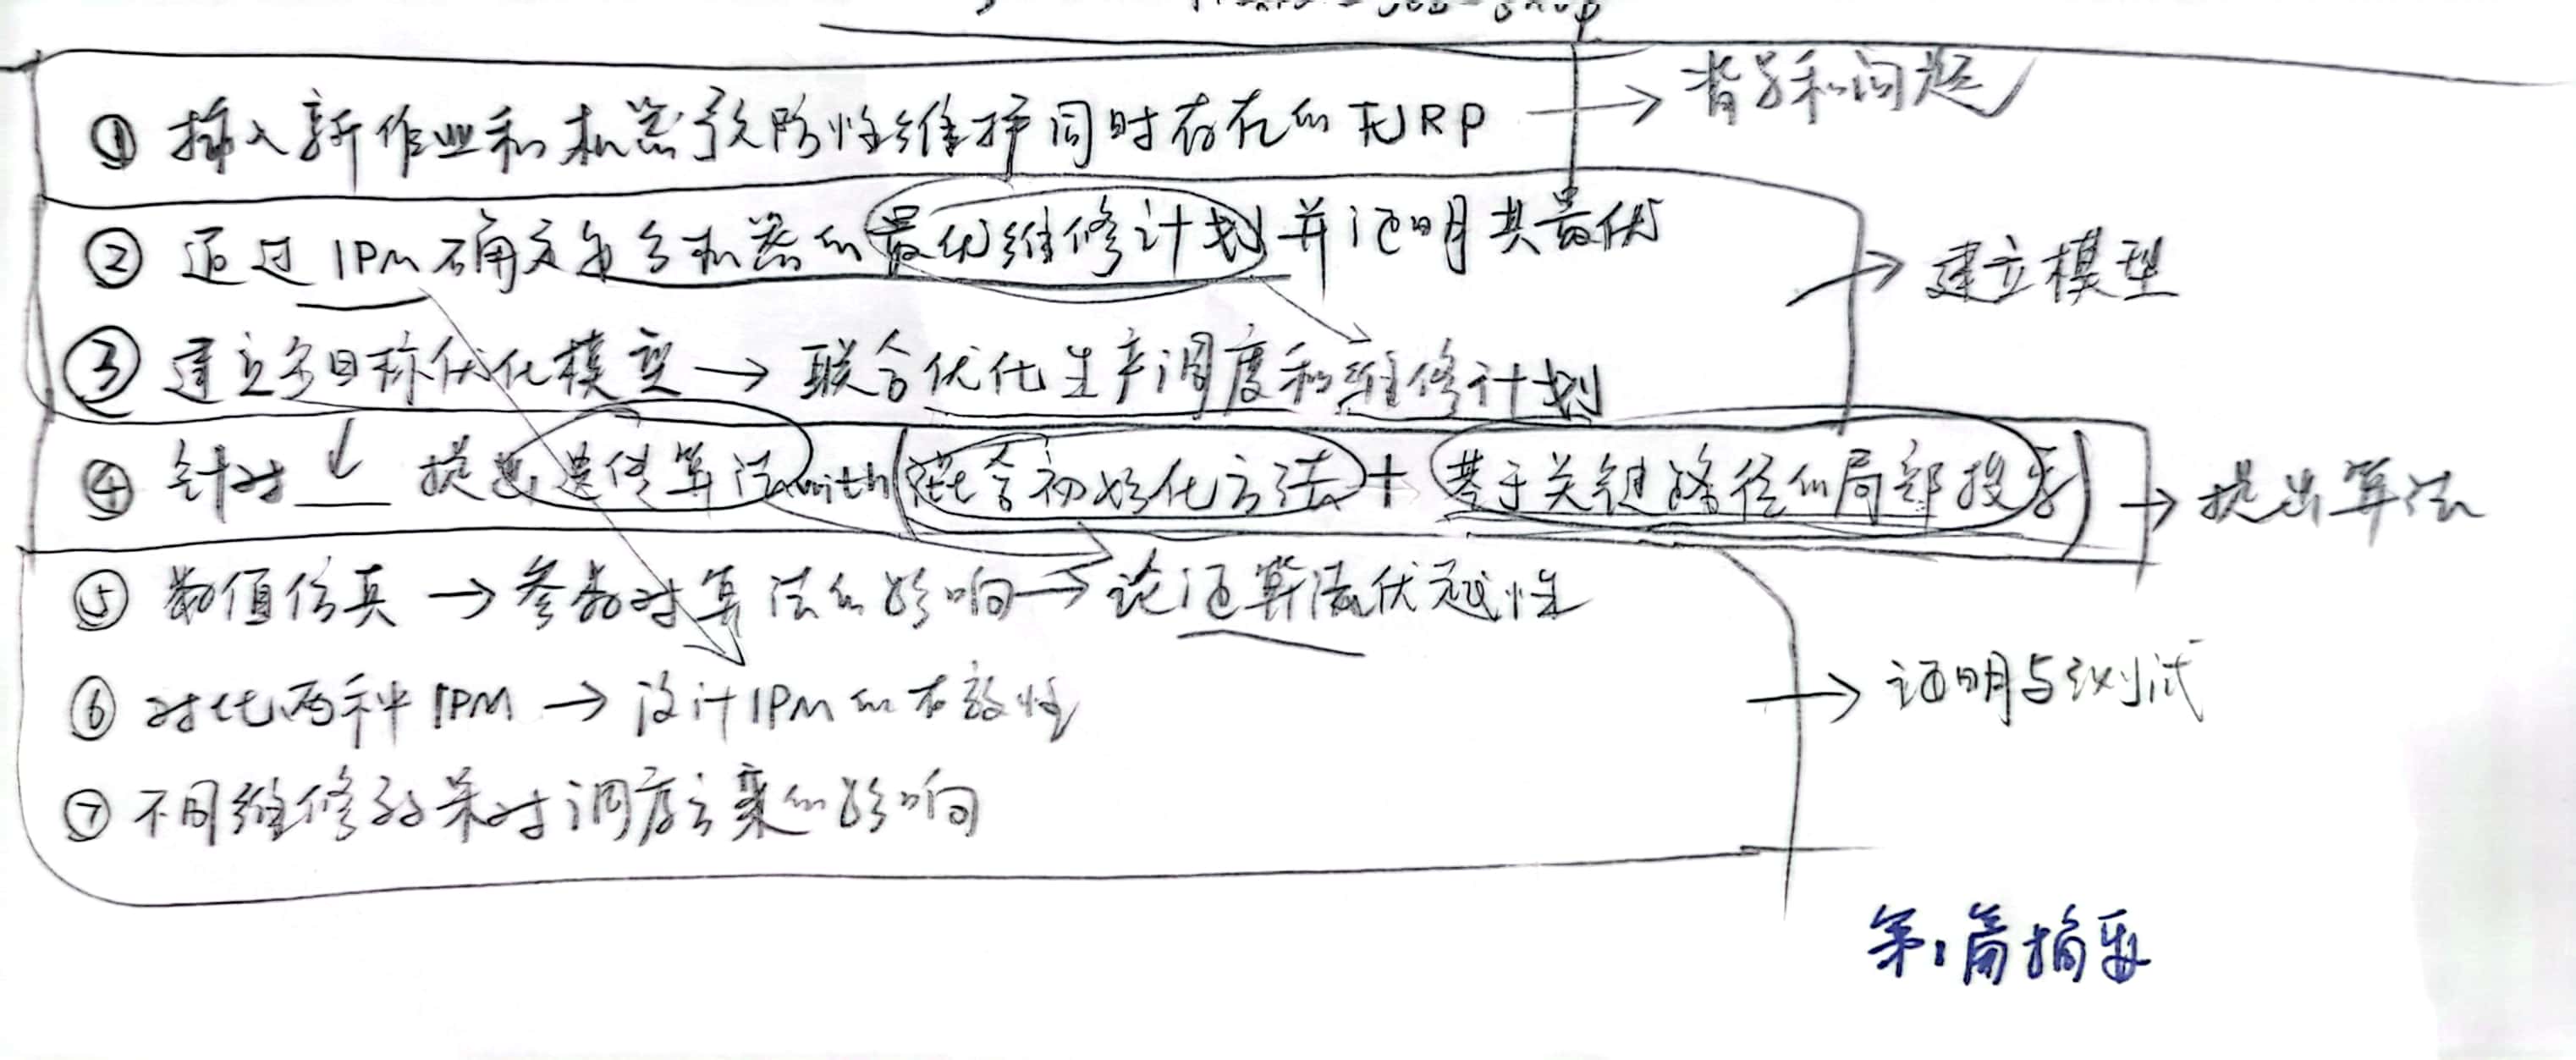 ① 插入新作业和机器预防性维护同时存在的 RP → 背景和问题
② 通过 IPM 确定每台机器的最优维修计划并证明其最优
→ 建立模型
③ 建立多目标优化模型 → 联合优化生产调度和维修计划
④ 针对 ↓ 提出遗传算法 with (混合初始化方法 + 基于关键路径的局部搜索) → 提出算法
⑤ 数值仿真 → 参数对算法的影响 → 论证算法优越性
⑥ 对比两种 IPM → 设计 IPM 的有效性
→ 证明与测试
⑦ 不同维修效果对调度方案的影响
第1篇摘要